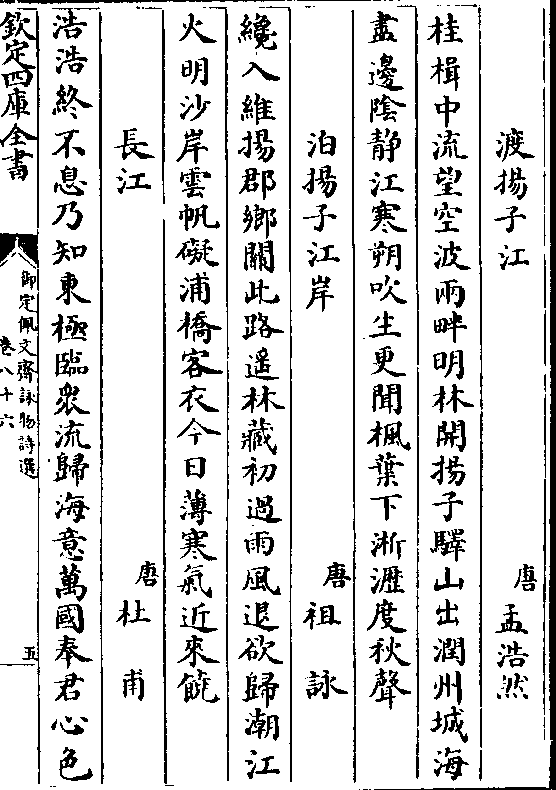 渡揚子江 唐孟浩然
桂楫中流望空波兩畔明林開揚子驛山出潤州城海
盡邊陰靜江寒朔吹生更聞楓葉下淅瀝度秋聲
泊揚子江岸 唐祖詠
纔入維揚郡鄉關此路遥林藏初過雨風退欲歸潮江
火明沙岸雲帆礙浦橋客衣今日薄寒氣近來饒
長江 唐杜甫
浩浩終不息乃知東極臨衆流歸海意萬國奉君心色
欽定四庫全書
御定佩文齋詠物詩選
卷八十六
五